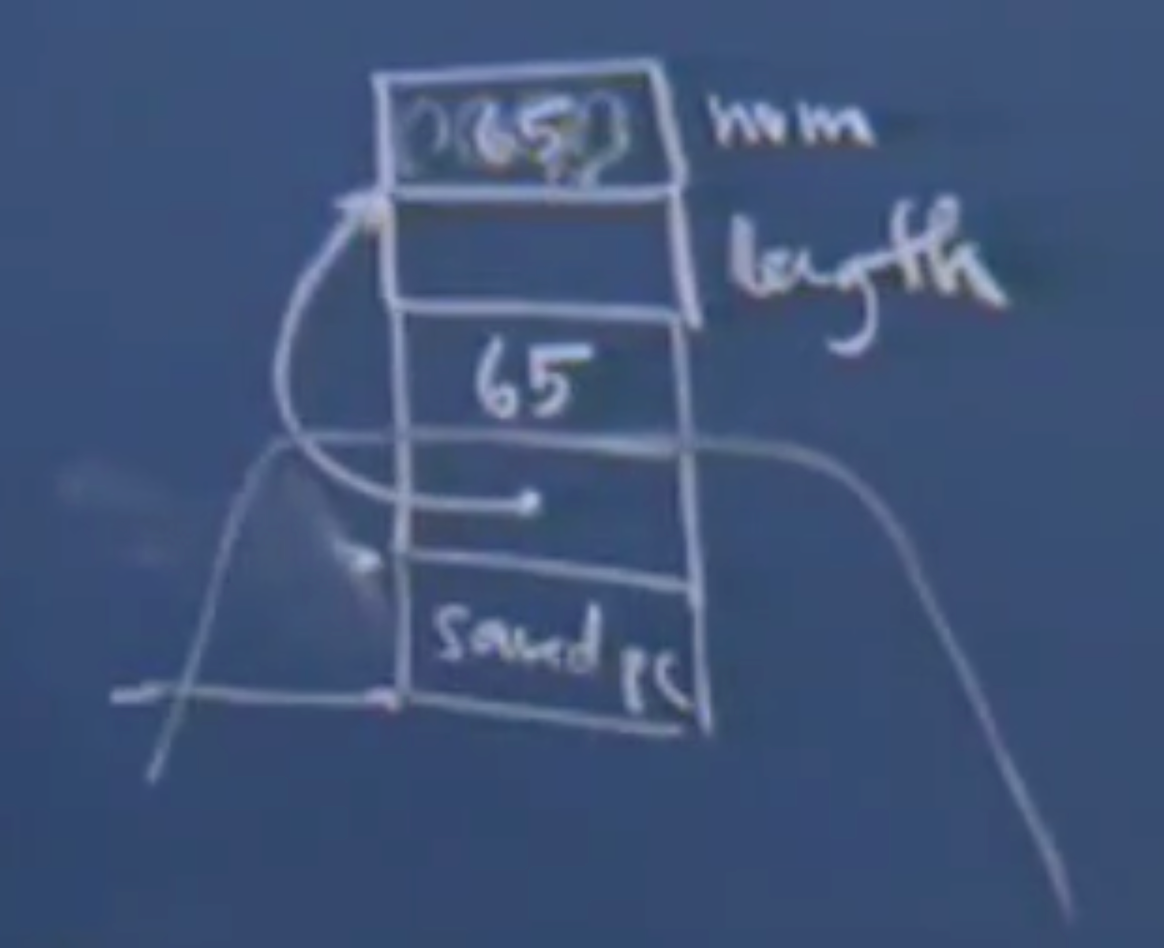 65 num
length
65
saved PC